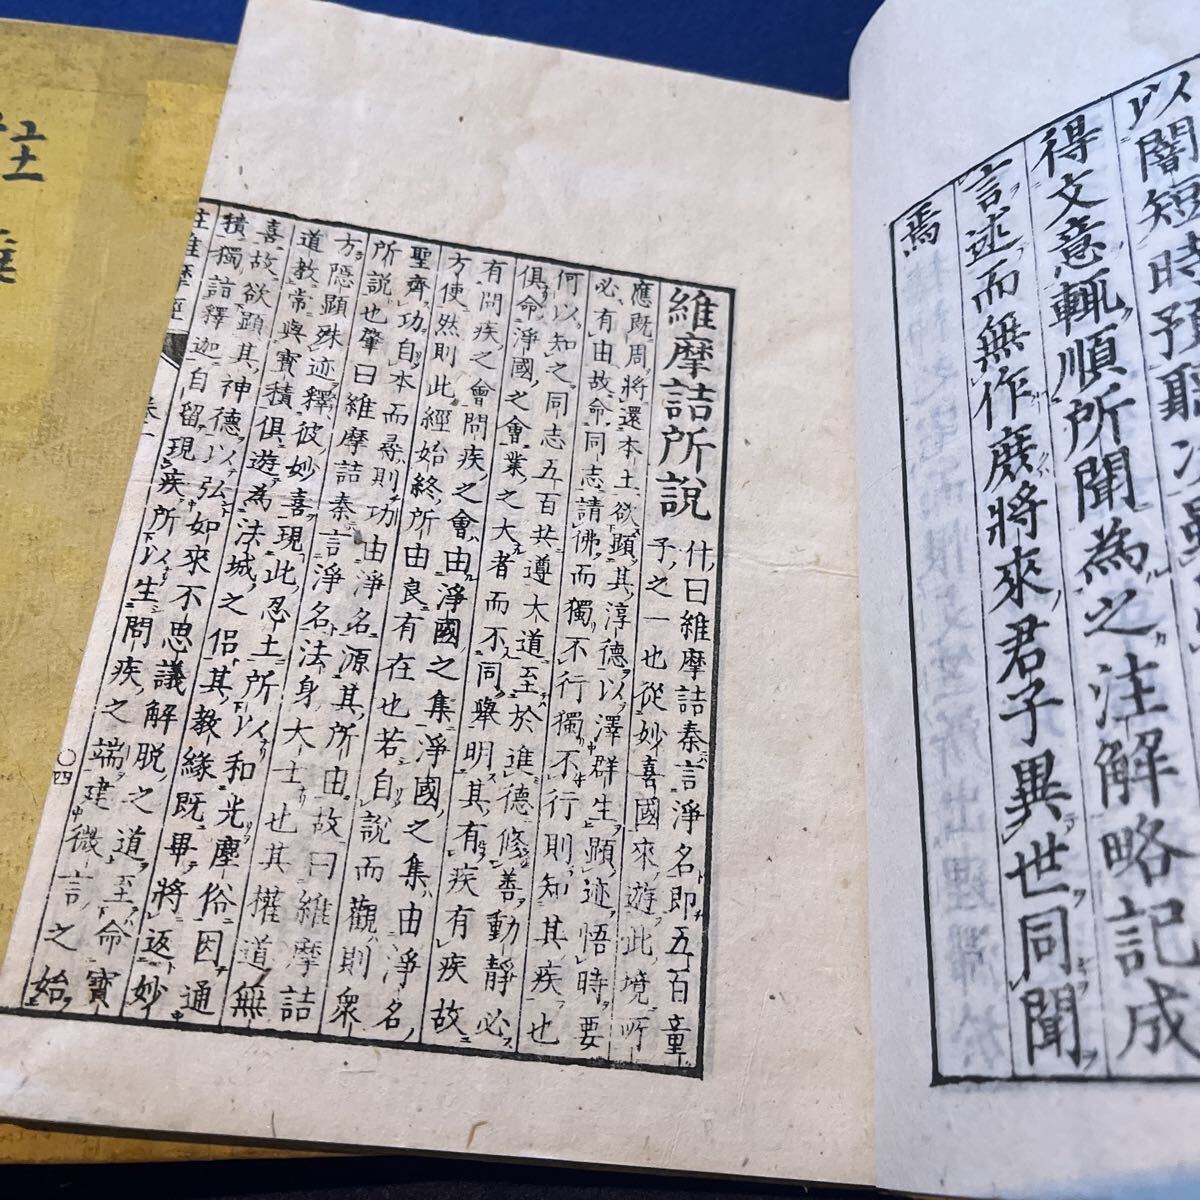 以闇短時預聽次雖
得文意輒順所聞為之注解略記成
言述而無作庶將來君子異世同聞
焉
維摩詰所說
什曰維摩詰秦言淨名即五百童
子之一也從妙喜國來遊此境所
應既周將還本土欲顯其淳德以澤群生顯迹悟時要
必有由故命同志請佛而獨不行獨不行則知其疾也
何以知之同志五百共遵大道至於進德修善動靜必
俱命淨國之會業之大者而不同舉明其有疾有疾故
有問疾之會問疾之會由淨國之集淨國之集由淨名
方便然則此經始終所由良有在也若自說而觀則眾
聖齊功自本而尋則功由淨名源其所由故曰維摩詰
所說也肇曰維摩詰秦言淨名法身大士也其權道無
方隱顯殊迹釋彼妙喜現此忍土所以和光塵俗因通
道教常與寶積俱遊為法城之侶其教緣既畢將返妙
喜故欲顯其神德以弘如來不思議解脫之道至命寶
積獨詣釋迦自留現疾所以生問疾之端建微言之始
註維摩經
〇四